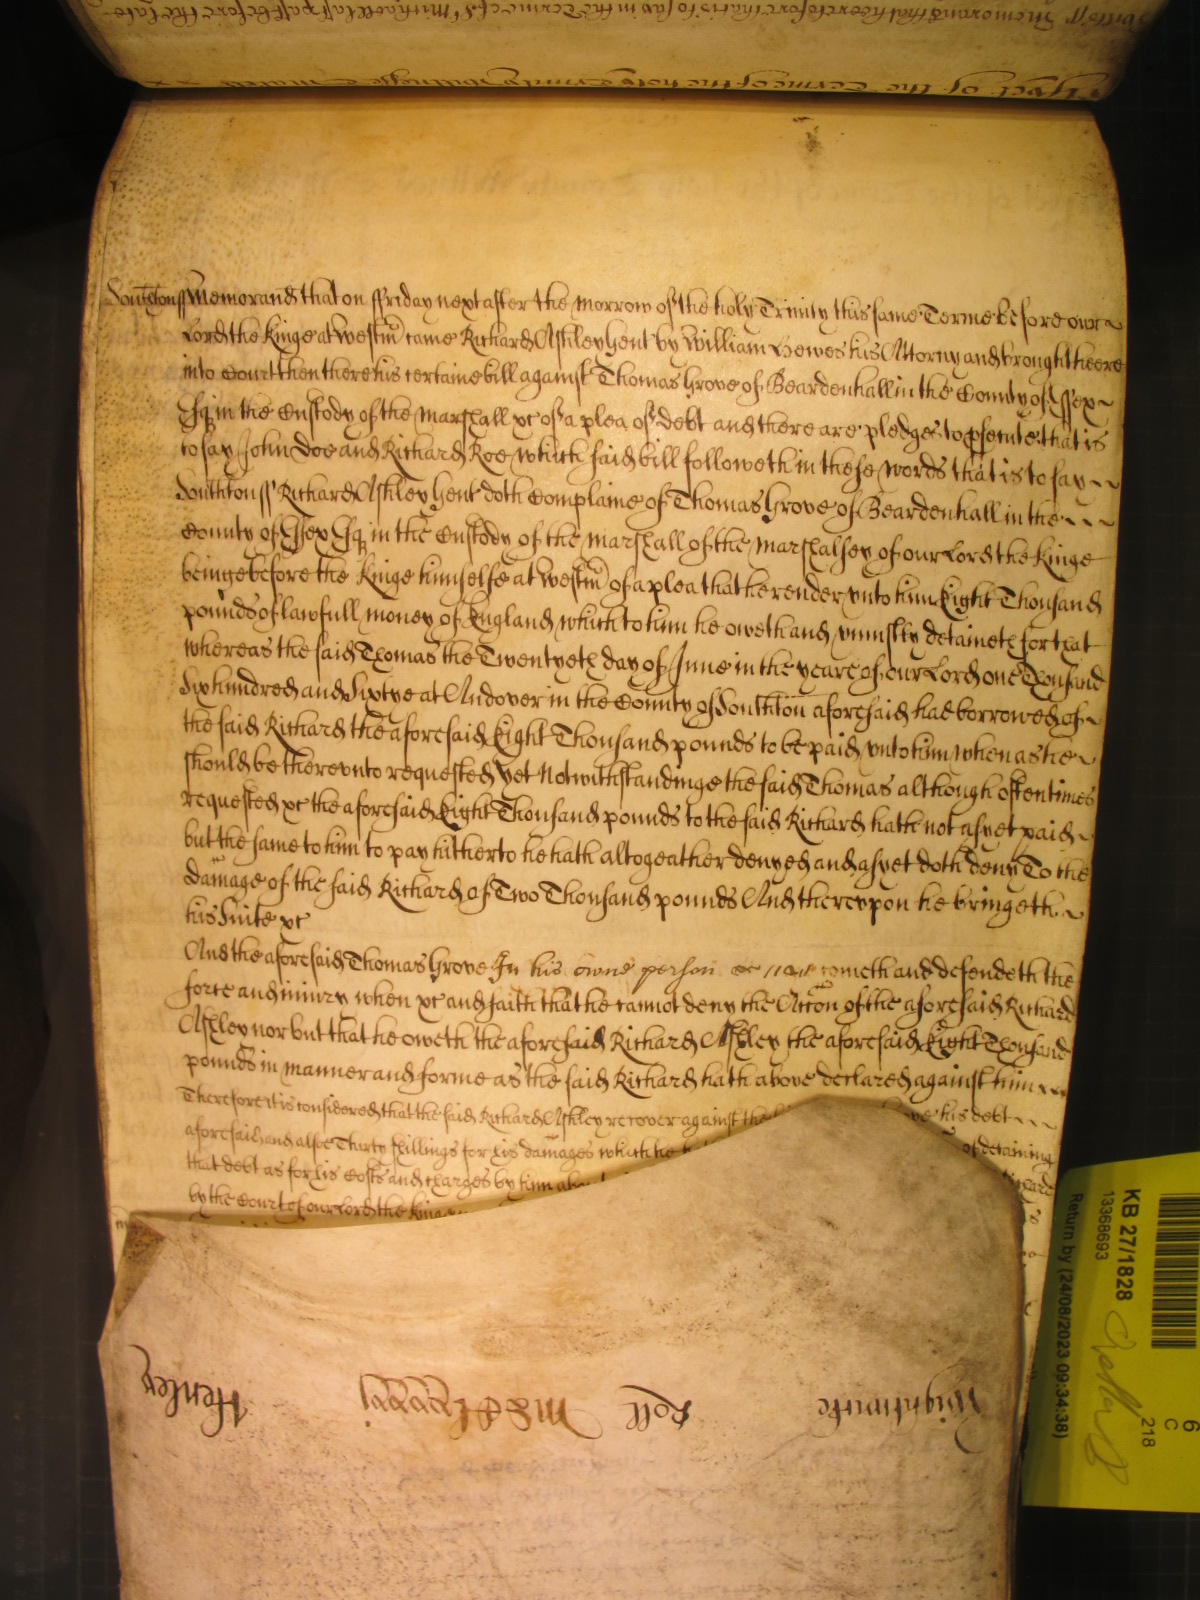 bill ss Memorand that heeretofore that is to say in the Terme of St Michaell last past before the late
Yet of the Terme of the holy Trinity
Southtonss Memorand that on ffriday next after the Morrow of the holy Trinity this same Terme before our
Lord the Kinge at Westm came Richard Astley gent by William Hewes his Attorny and brought heere
into Court then there his certaine bill against Thomas Grove of Beardenhall in the County of Essex
Esq in the Custody of the Marshall xc of a plea of debt and there are pledges to psecute that is
to say John Doe and Richard Roe which said bill followeth in these words that is to say
Southton ss Richard Astley gent doth Complaine of Thomas Grove of Beardenhall in the
County of Essex Esq in the Custody of the Marshall of the Marshalsey of our Lord the Kinge
beinge before the Kinge himselfe at Westm of a plea that he render vnto him Eight Thousand
pounds of lawfull money of England which to him he oweth and vniustly detaineth for that
whereas the said Thomas the Twentyeth day of June in the yeare of our Lord one Thousand
Six hundred and Sixtye at Andover in the County of Southton aforesaid had borrowed of
the said Richard the aforesaid Eight Thousand pounds to be paid vnto him when as he
should be therevnto requested yet Notwithstandinge the said Thomas although oftentimes
requested xc the aforesaid Eight Thousand pounds to the said Richard hath not as yet paid
but the same to him to pay hitherto he hath altogeather denyed and as yet doth deny To the
damage of the said Richard of Two Thousand pounds And therevpon he bringeth
his Suite xc
And the aforesaid Thomas Grove In his owne person cometh and defendeth the
force and iniury when xc and saith that he cannot deny the Accon of the aforesaid Richard
Astley nor but that he oweth the aforesaid Richard Astley the aforesaid Eight Thousand
pounds in manner and forme as the said Richard hath above declared against him
Therefore it is considered that the said Richard Astley recover against the his debt
aforesaid and alsoe Thirty shillings for his damages which he of detaining
that debt as for his Costs and charges by him about
by the Court of our Lord the Kinge
Wightwicke Roll Henley
KB 27/1828
13368693
Return by (24/08/2023 09:34:38)
6
C
218